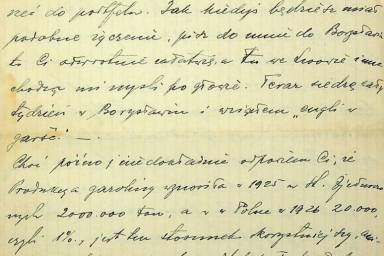 nieć do portfelu. Jak kiedyś będziesz miał
podobne życzenie, pisz do mnie do Borysławia
to Ci odwrotnie załatwię, a tu we Lwowie inne
chodzą mi myśli po głowie. Teraz siedzę cały
tydzień w Borysławiu i wziąłem „cugli w
garść". —
Choć późno i niedokładnie odpowiem Ci, że
Produkcya gazoliny wynosiła w 1925 w St. Zjednoczo
nych 2000.000 ton, a w Polsce w 1926 20.000,
czyli 1%, jest ten stosunek korzystniejszy,